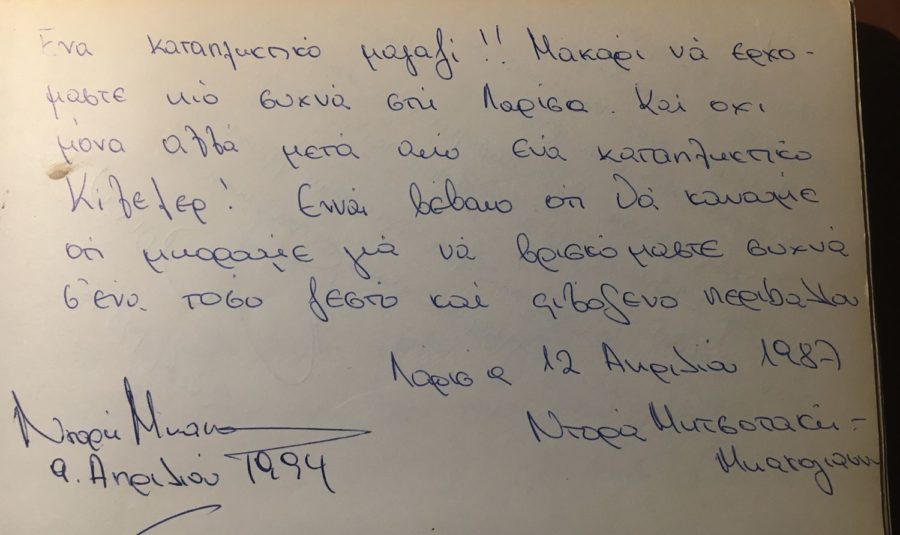 Ένα καταπληκτικό μαγαζί!! Μακάρι νά ερχό-
μαστε πιό συχνά στη Λάρισα. Καί οχι
μόνα αλλά μετά από ένα καταπληκτικό
Κιλελέρ! Είναι βέβαιο ότι θά κάναμε
ότι μπορούμε γιά νά βρισκόμαστε συχνά
σ' ένα τόσο ζεστό και φιλόξενο περιβάλλον
Λάρισα 12 Απριλίου 1987
Ντόρα Μητσοτάκη-
Μπακογιάννη
Ντόρα Μπακο
9. Απριλίου 1994